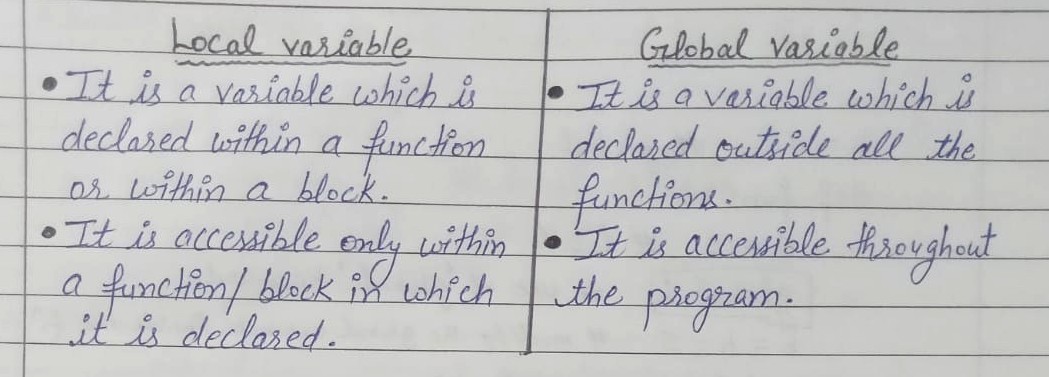 Local variable
• It is a variable which is
declared within a function
or within a block.
• It is accessible only within
a function/ block in which
it is declared.
Global variable
• It is a variable which is
declared outside all the
functions.
• It is accessible throughout
the program.